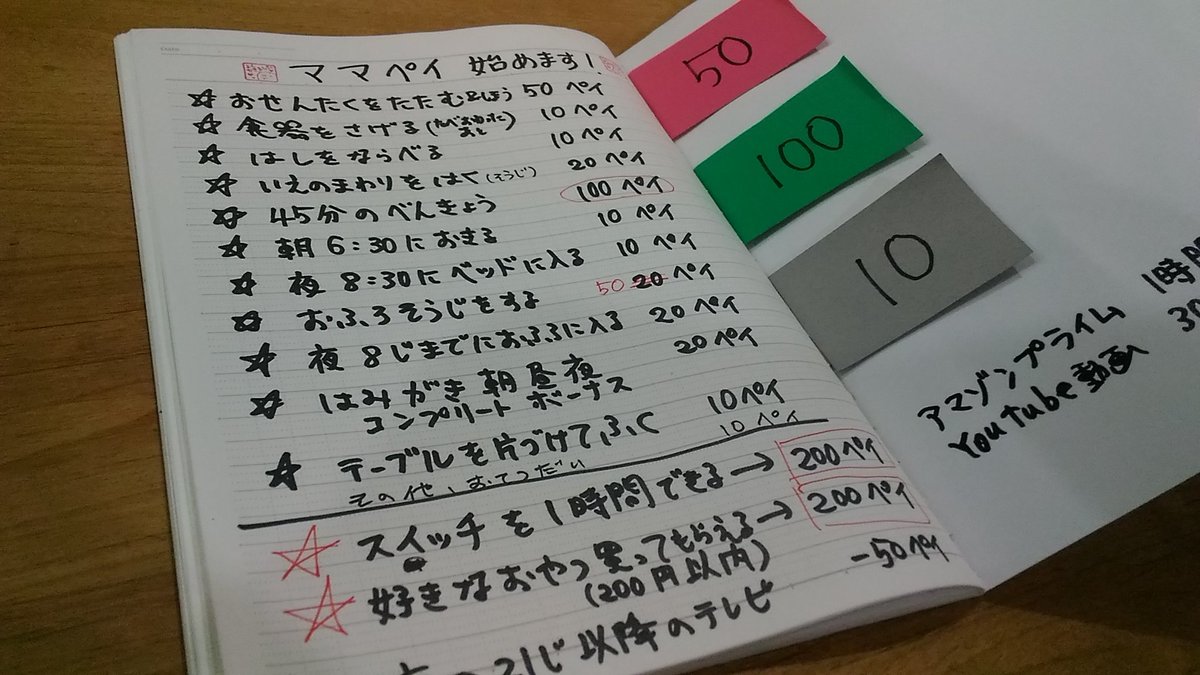 ママペイ 始めます!
☆ おせんたくをたたむ&しまう 50 ペイ
☆ 食器をさげる(たべおわったあと) 10 ペイ
☆ はしをならべる 10 ペイ
☆ いえのまわりをはく(そうじ) 20 ペイ
☆ 45分のべんきょう 100 ペイ
☆ 朝6:30におきる 10 ペイ
☆ 夜 8:30にベッドに入る 10 ペイ
☆ おふろそうじをする 50 20 ペイ
☆ 夜 8じまでにおふろに入る 20 ペイ
☆ はみがき 朝昼夜 20 ペイ
コンプリート ボーナス
☆ テーブルを片づけてふく 10ペイ
その他、おてつだい 10 ペイ
☆ スイッチを1時間できる→ 200ペイ
☆ 好きなおやつ買ってもらえる→ 200ペイ
(200円以内)
じ以降のテレビ -50ペイ
50
100
10
アマゾンプライム 1時間
Youtube動画 30